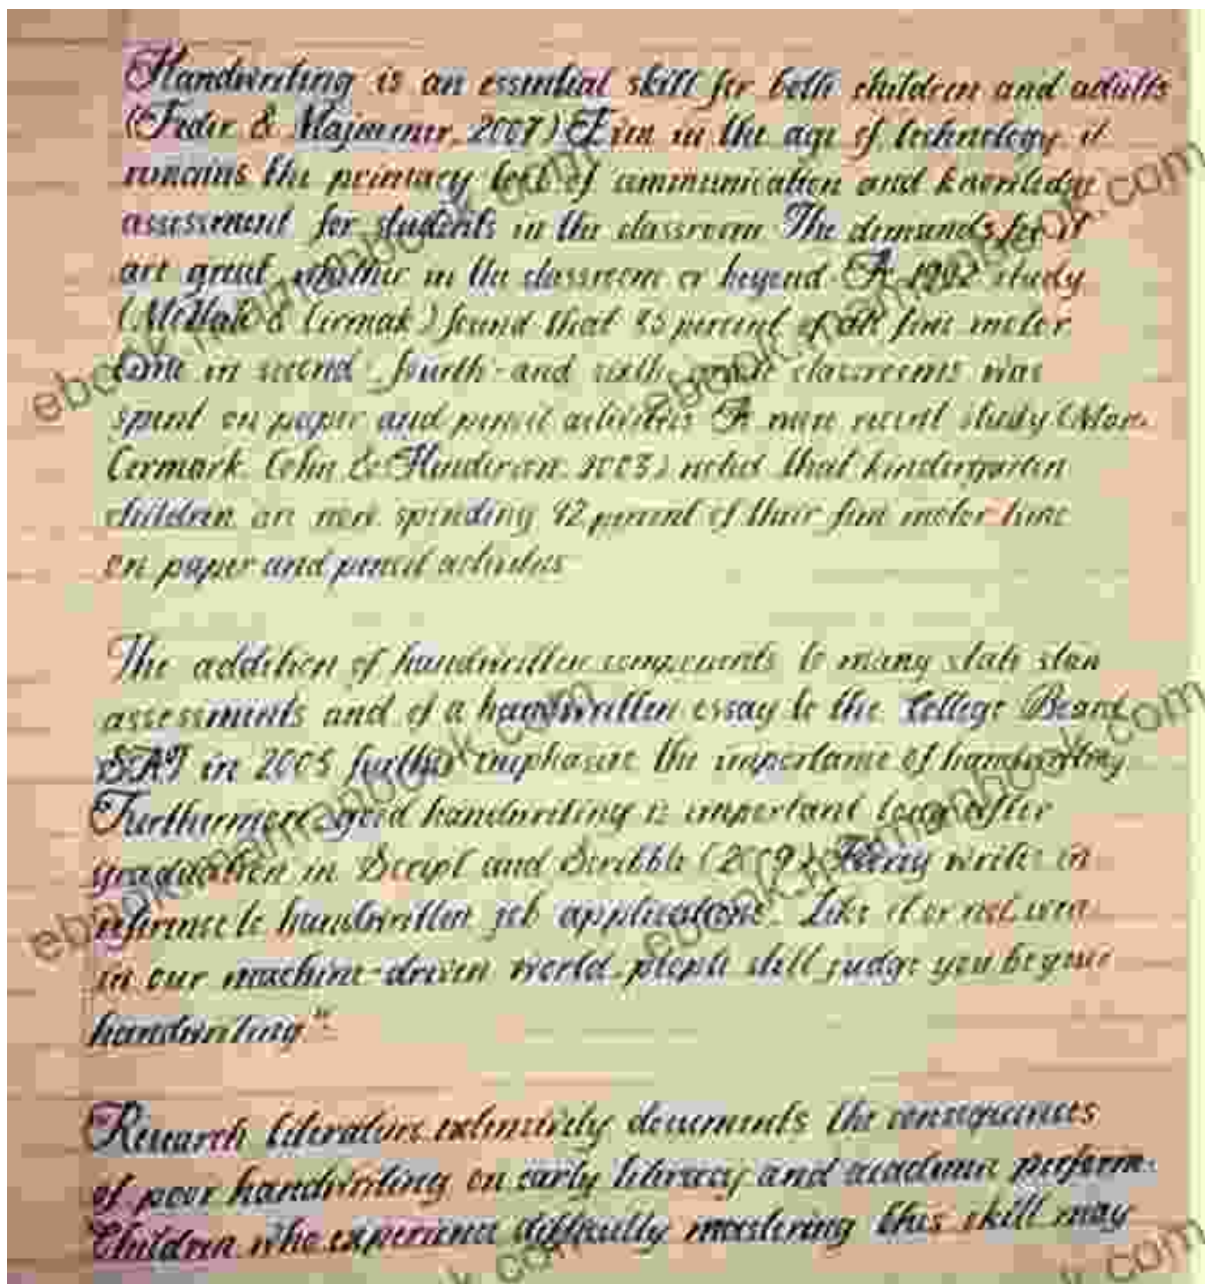 Handwriting is an essential skill for both children and adults
(Feder & Majnemer, 2007) Even in the age of technology it
remains the primary tool of communication and knowledge
assessment for students in the classroom The demands for it
are great whether in the classroom or beyond A 1992 study
(McHale & Cermak) found that 85 percent of all fine motor
time in second- fourth- and sixth- grade classrooms was
spent on paper and pencil activities A more recent study (Marr.
Cermark. Cohn & Henderson. 2003) noted that kindergarten
children are now spending 42 percent of their fine motor time
on paper and pencil activities
The addition of handwritten components to many state stan
assessments and of a handwritten essay to the College Board
SAT in 2005 further emphasize the importance of handwriting.
Furthermore, good handwriting is important long after
graduation in Script and Scribble (2009) Florey writes in
reference to handwritten job applications. Like it or not, even
in our machine-driven world, people still judge you by your
handwriting"
Research literature extensively documents the consequences
of poor handwriting on early literacy and academic perform
Children who experience difficulty mastering this skill may
ebook.nampbook.com
ebook.nampbook.com
ebook.nampbook.com
ebook.nampbook.com